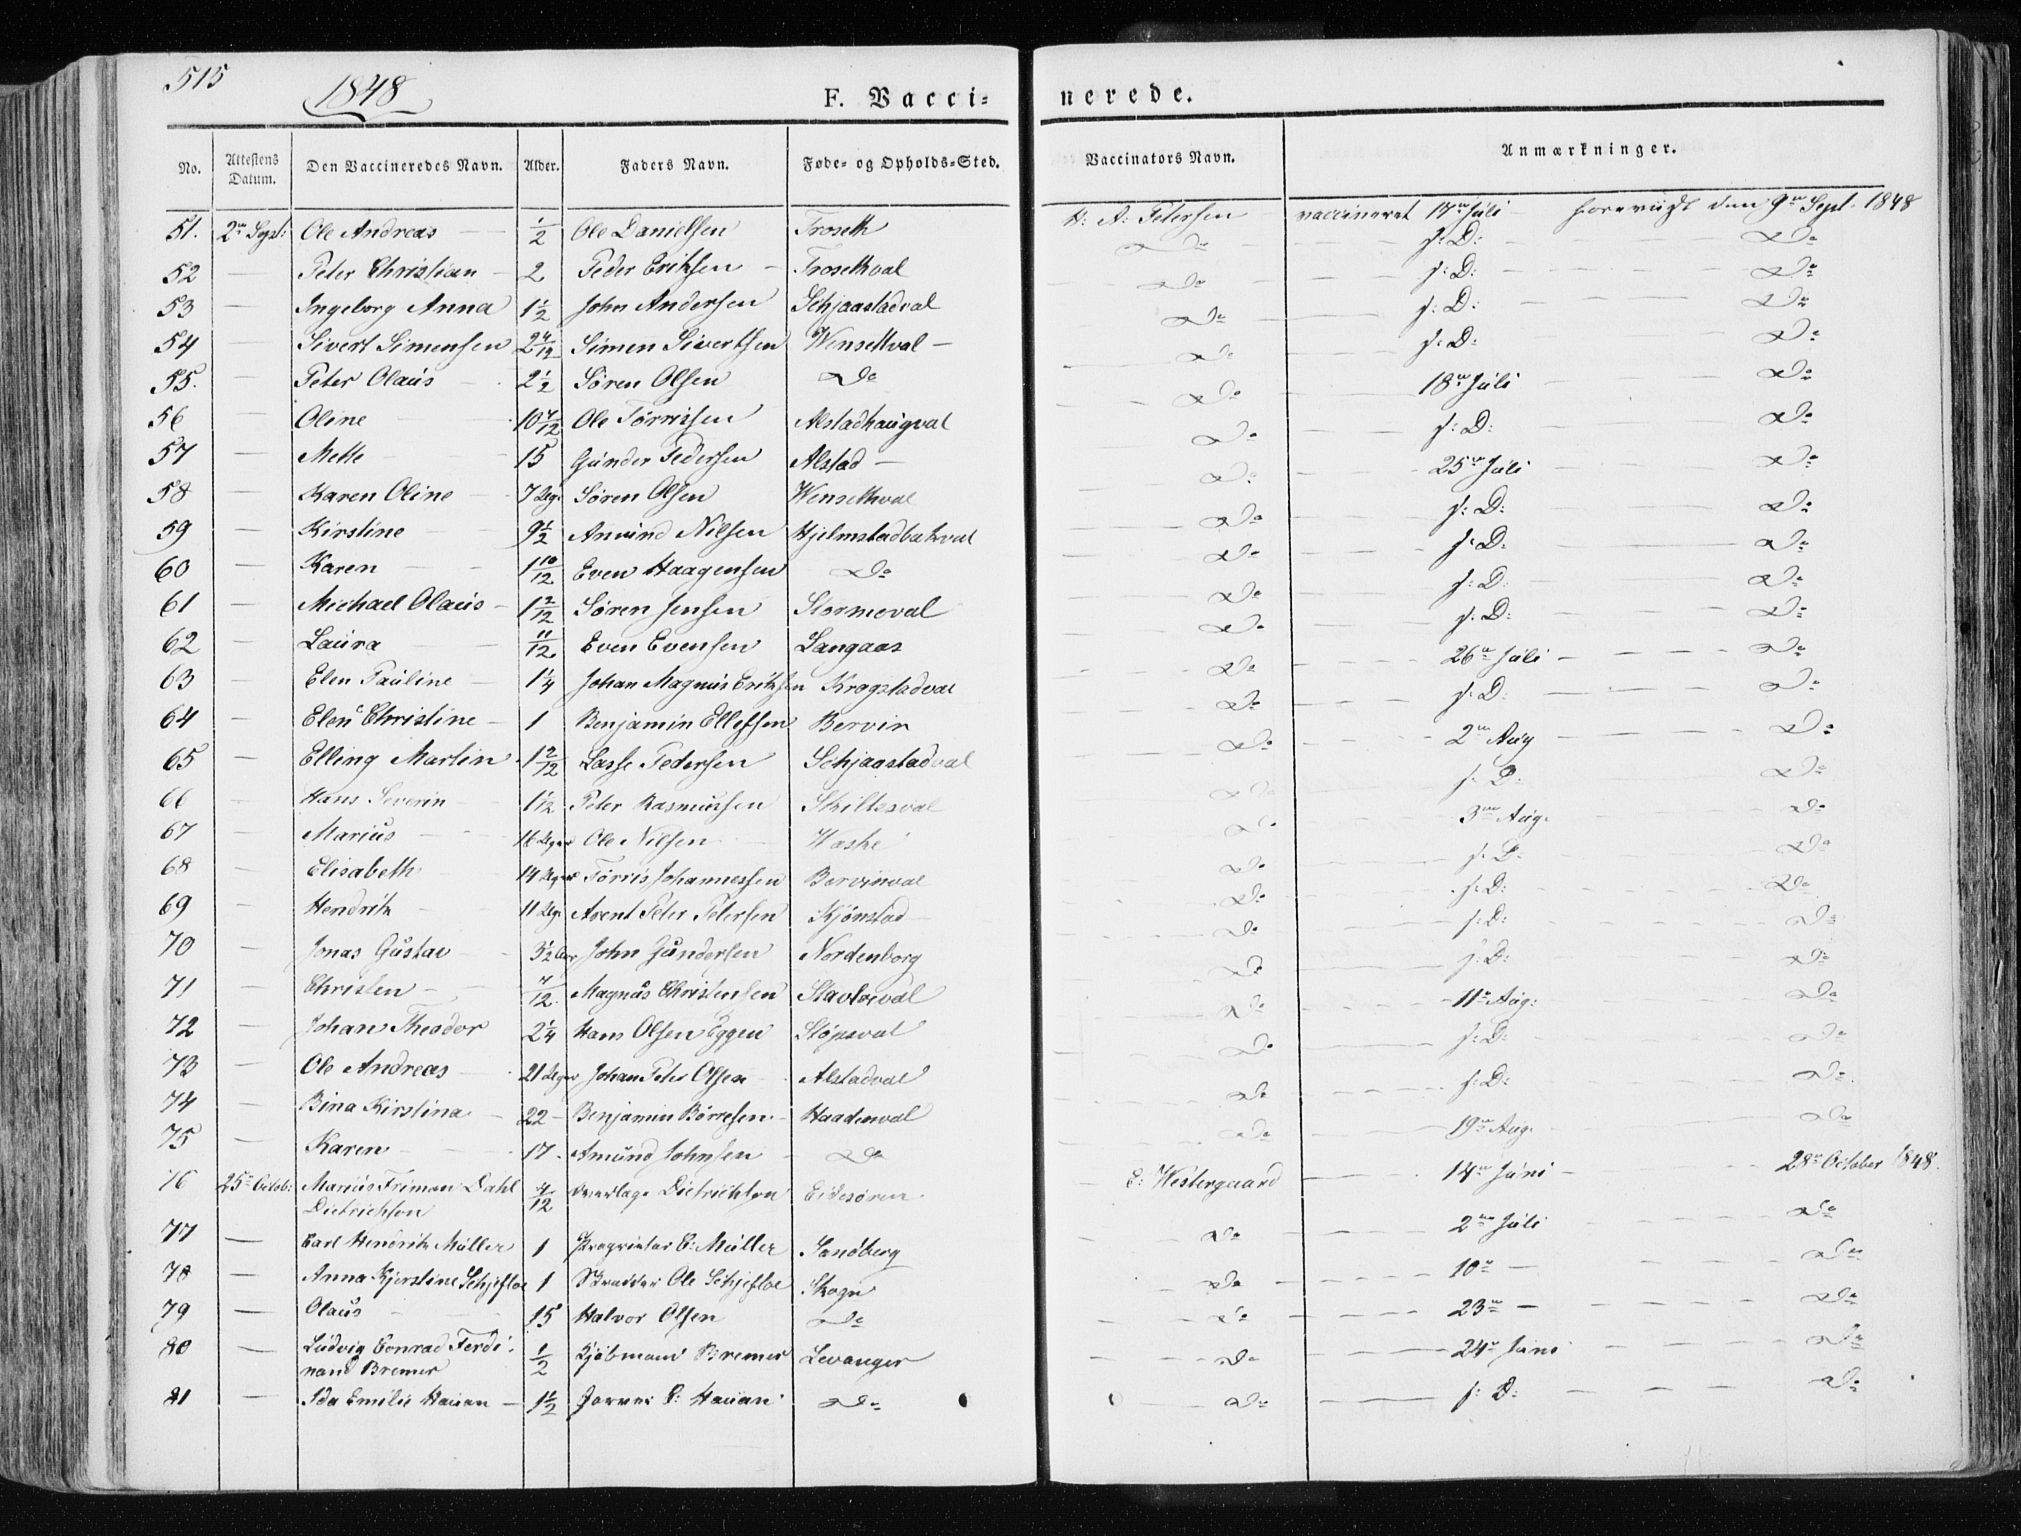 515
1848
F. Vaccinerede.
No. Attestens Datum. Den Vaccineredes Navn. Alder. Faders Navn. Føde- og Opholds-Sted. Vaccinators Navn. Anmærkninger.
51. 2n Sept: Ole Andreas 1/2 Ole Danielsen Troseth A: Petersen vaccineret 17n Juli foreviist den 9n Sept. 1848
52 — Peter Christian 2 Peder Eriksen Trosethval Do s: D: Do
53 — Ingeborg Anna 1 1/2 John Andersen Schjaastadval Do s: D: Do
54 — Sivert Simensen 2 4/12 Simen Sivertsen Wensethval Do s: D: Do
55. — Peter Olaus 2 1/2 Søren Olsen Do Do s: D: Do
56 — Oline 10 7/12 Ole Tørrisen Alstadhaugval Do 18n Juli Do
57 — Mette 15 Gunder Pedersen Alstad Do s: D: Do
58 — Karen Oline 7 Uger Søren Olsen Wensethval Do 25n Juli Do
59 — Kirstine 9 1/2 Amund Nilsen Hjelmstadbakval Do s: D: Do
60 — Karen 1 10/12 Even Haagensen Do Do s: D: Do
61 — Michael Olaus 1 2/12 Søren Jensen Stormoval Do s: D: Do
62 — Laura 11/12 Even Evensen Langaas Do s: D: Do
63 — Elen Pauline 1 1/4 Johan Magnus Eriksen Kragstadval Do 26n Juli Do
64 — Elen Christine 1 Benjamin Ellefsen Bervin Do s: D: Do
65 — Elling Martin 1 2/12 Lasse Pedersen Schjaastadval Do 2n Aug Do
66 — Hans Severin 1 1/12 Peter Rasmussen Skiltesval Do s: D: Do
67 — Marius 16 Uger Ole Nilsen Do 3n Aug. Do
68 — Elisabeth 14 Uger Tørris Johannessen Bervinval Do s: D: Do
69 — Hendrik 11 Uger Arent Peter Petersen Kjønstad Do s: D: Do
70 — Jonas Gustav 3 1/2 Aar John Gundersen Nordenborg Do s: D: Do
71 — Christen 7/12. Magnus Christensen Stavloeval Do s: D: Do
72 — Johan Theodor 2 1/4 Hans Olsen Eggen Støpsval Do 11n Aug: Do
73 — Ole Andreas 21 Uger Johan Peter Olsen Alstadval Do s: D: Do
74 — Bina Kirstina 22 — Benjamin Børresen Haadenval Do s: D: Do
75 — Karen 17. Amund Johnsen Do Do 19n Aug. Do
76 25n Octob: Marius Friman Dahl 7/12 Overlæge Dietrichson Eidesøren E: Westergaard 14n Juni 28n October 1848.
Dietrichson
77 — Carl Hendrik Müller 1 Proprietær C: Müller Sandberg Do 2n Juli Do
78 — Anna Kjerstine Schjefloe 1 Skrædder Ole Schjefloe Skogn Do 10n — Do
79 — Olaus 15 Halvor Olsen Do Do 23n — Do
80 — Ludvig Conrad Ferdi- 1/2 Kjøbmand Bremer Levanger Do 24n Juni Do
nand Bremer
81 — Ida Emilie Hauan 1 1/2 Garver Hauan Do Do s: D: Do